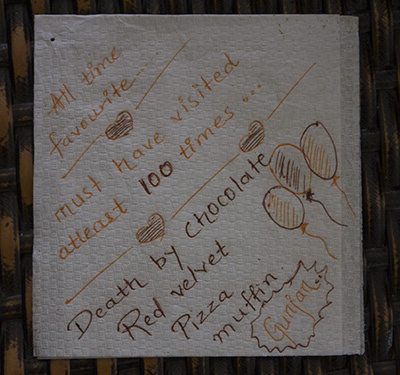 All time
favourite...
must have visited
atleast 100 times...
Death by chocolate
Red velvet
Pizza
muffin
Gunjan..